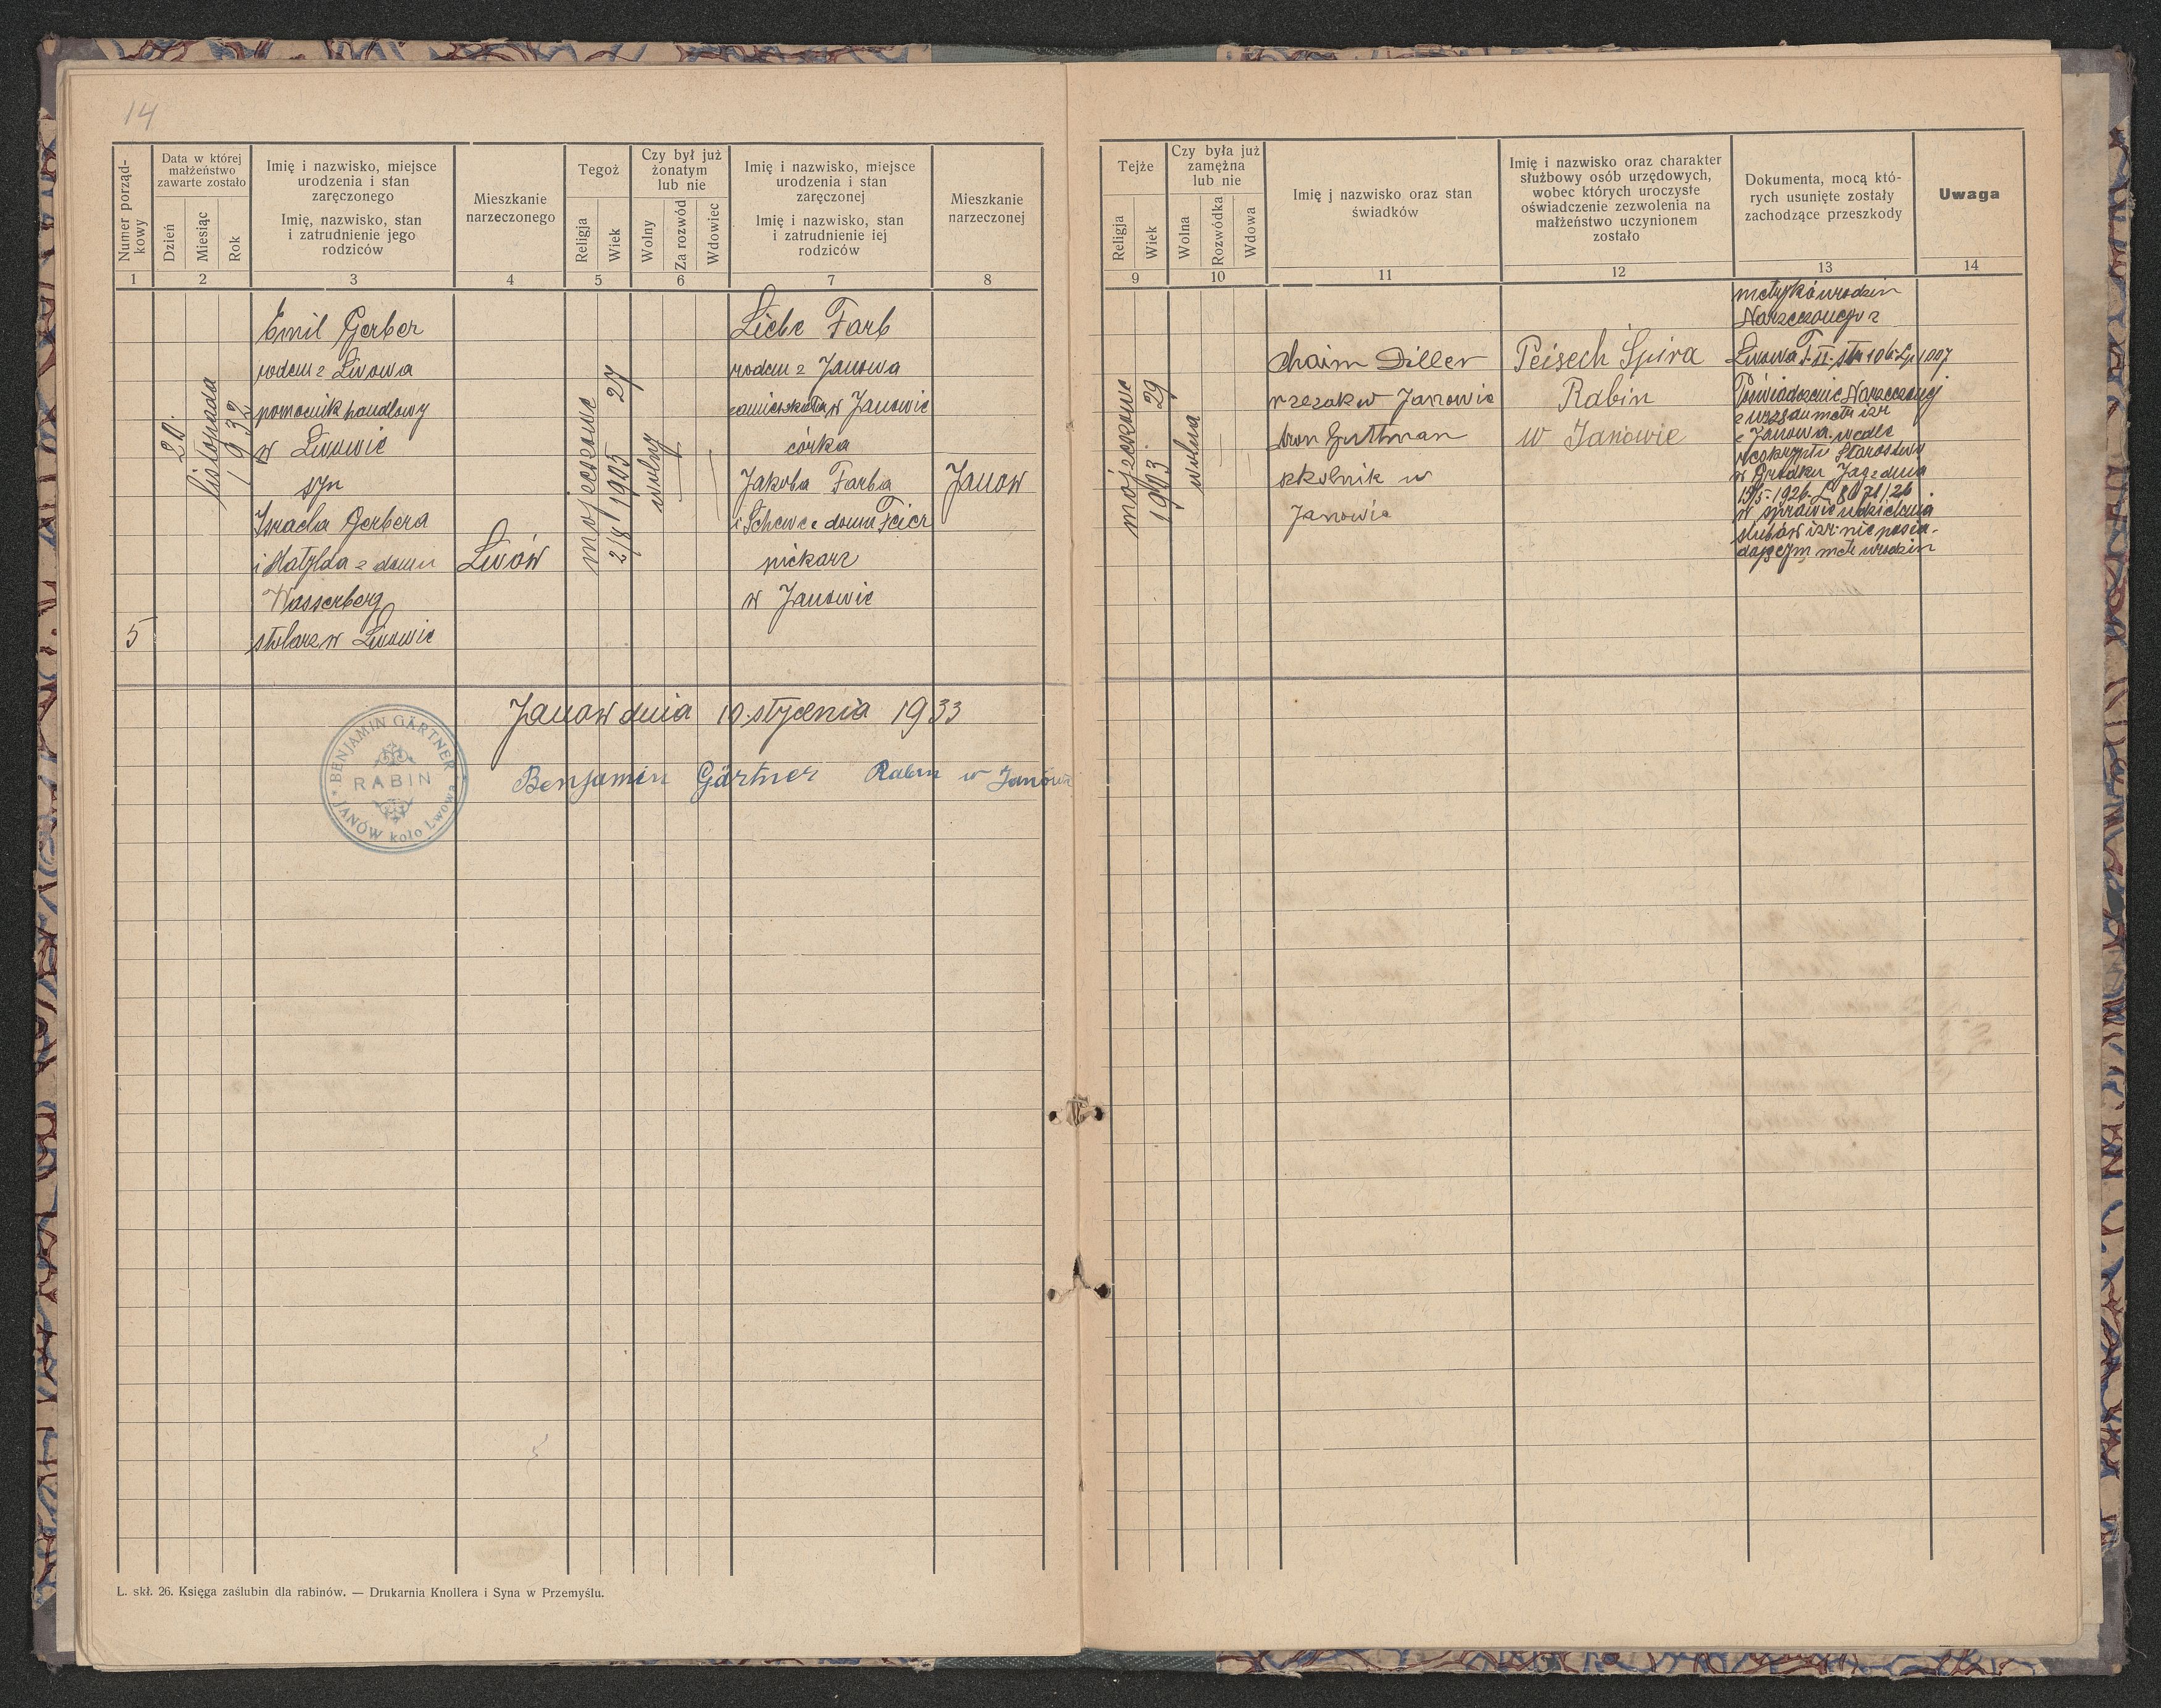 14
Numer porząd-
kowy
Data w której
małżeństwo
zawarte zostało
Dzień
Miesiąc
Rok
Imię i nazwisko, miejsce
urodzenia i stan
zaręczonego
Imię, nazwisko, stan
i zatrudnienie jego
rodziców
Mieszkanie
narzeczonego
Tegoż
Religja
Wiek
Czy był już
żonatym
lub nie
Wolny
Za rozwód
Wdowiec
Imię i nazwisko, miejsce
urodzenia i stan
zaręczonej
Imię i nazwisko, stan
i zatrudnienie iej
rodziców
Mieszkanie
narzeczonej
1 2 3 4 5 6 7 8
5
20.
listopada
1932
Emil Gerber
rodem z Lwowa
pomocnik handlowy
w Lwowie
syn
Izraela Gerbera
i Matylda z domu
Wasserberg
stolarz w Lwowie
Lwów
mojżeszowe
2/8 1905 27
wolny
Liebe Farb
rodem z Janowa
zamieszkała w Janowie
córka
Jakoba Farba
i Schewe z domu Feier
piekarz
w Janowie
Janow
Janow dnia 10 stycznia 1933
Benjamin Gärtner Rabin w Janowie
BENJAMIN GÄRTNER
RABIN
JANÓW koło Lwowa
L. skł. 26. Księga zaślubin dla rabinów. — Drukarnia Knollera i Syna w Przemyślu.
Tejże
Religja
Wiek
Czy była już
zamężna
lub nie
Wolna
Rozwódka
Wdowa
Imię j nazwisko oraz stan
świadków
Imię i nazwisko oraz charakter
służbowy osób urzędowych,
wobec których uroczyste
oświadczenie zezwolenia na
małżeństwo uczynionem
zostało
Dokumenta, mocą któ-
rych usunięte zostały
zachodzące przeszkody
Uwaga
9 10 11 12 13 14
mojżeszowe
1903 29
wolna
Chaim Diller
rzezak w Janowie
Aron Guttman
szkolnik w
Janowie
Peisech Spira
Rabin
w Janowie
metryka urodzin
Narzeczonego z
Lwowa T. II. str 106 Lp 1007
Poświadczenie Narzeczonej
z urzędu metr izr
z Janowa. wedle
reskryptu Starostwa
w Gródku Jag z dnia
1926
w sprawie udzielania
ślubów izr. nie posia-
dającym metr urodzin